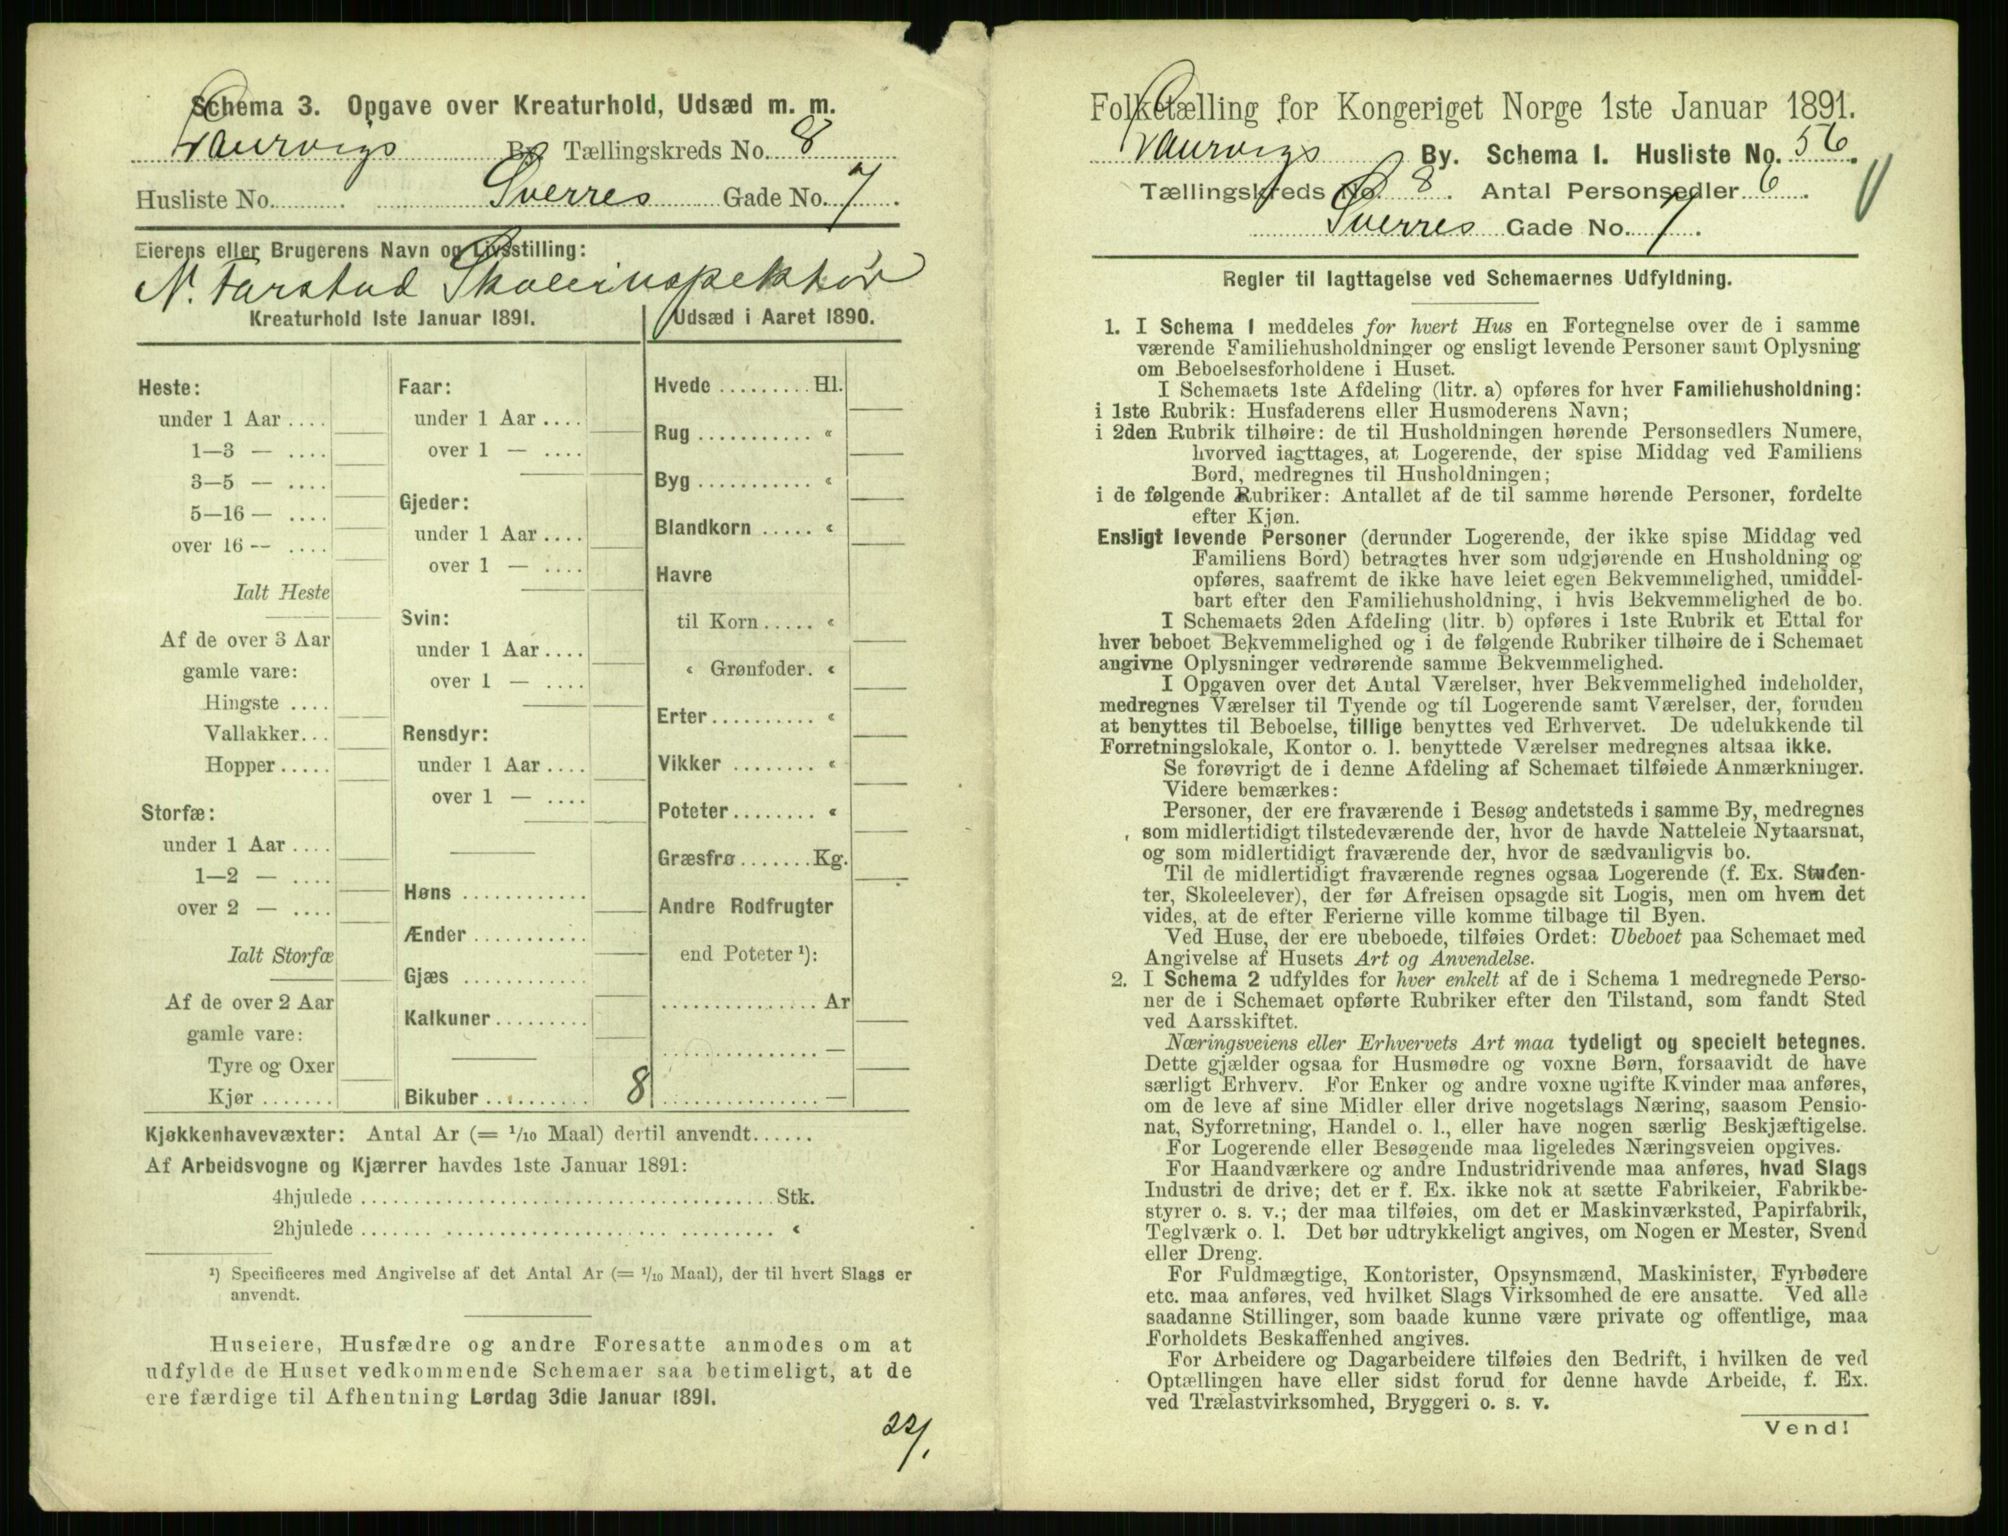 Schema 3. Opgave over Kreaturhold, Udsæd m. m.
Laurvigs By Tællingskreds No. 8
Husliste No. Sverres Gade No. 7
Eierens eller Brugerens Navn og Livsstilling:
N. Tarstad Skoleinspektør
Kreaturhold 1ste Januar 1891.
Udsæd i Aaret 1890.
Heste:
under 1 Aar
1—3 —
3—5 —
5—16 —
over 16 —
Ialt Heste
Af de over 3 Aar
gamle vare:
Hingste
Vallakker
Hopper
Storfæ:
under 1 Aar
1—2 —
over 2 —
Ialt Storfæ
Af de over 2 Aar
gamle vare:
Tyre og Oxer
Kjør
Faar:
under 1 Aar
over 1 —
Gjeder:
under 1 Aar
over 1 —
Svin:
under 1 Aar
over 1 —
Rensdyr:
under 1 Aar
over 1 —
Høns
Ænder
Gjæs
Kalkuner
Bikuber 8
Hvede Hl.
Rug «
Byg «
Blandkorn «
Havre
til Korn «
« Grønfoder. «
Erter «
Vikker «
Poteter «
Græsfrø Kg.
Andre Rodfrugter
end Poteter ¹):
Ar
—
—
Kjøkkenhavevæxter: Antal Ar (= 1/10 Maal) dertil anvendt
Af Arbeidsvogne og Kjærrer havdes 1ste Januar 1891:
4hjulede Stk.
2hjulede «
¹) Specificeres med Angivelse af det Antal Ar (= 1/10 Maal), der til hvert Slags er
anvendt.
Huseiere, Husfædre og andre Foresatte anmodes om at
udfylde de Huset vedkommende Schemaer saa betimeligt, at de
ere færdige til Afhentning Lørdag 3die Januar 1891.
22/1
Folketælling for Kongeriget Norge 1ste Januar 1891.
Laurvigs By. Schema I. Husliste No. 56.
Tællingskreds No. 8. Antal Personsedler 6.
Sverres Gade No. 7.
Regler til Iagttagelse ved Schemaernes Udfyldning.
1. I Schema 1 meddeles for hvert Hus en Fortegnelse over de i samme
værende Familiehusholdninger og ensligt levende Personer samt Oplysning
om Beboelsesforholdene i Huset.
I Schemaets 1ste Afdeling (litr. a) opføres for hver Familiehusholdning:
i 1ste Rubrik: Husfaderens eller Husmoderens Navn;
i 2den Rubrik tilhøire: de til Husholdningen hørende Personsedlers Numere,
hvorved iagttages, at Logerende, der spise Middag ved Familiens
Bord, medregnes til Husholdningen;
i de følgende Rubriker: Antallet af de til samme hørende Personer, fordelte
efter Kjøn.
Ensligt levende Personer (derunder Logerende, der ikke spise Middag ved
Familiens Bord) betragtes hver som udgjørende en Husholdning og
opføres, saafremt de ikke have leiet egen Bekvemmelighed, umiddel-
bart efter den Familiehusholdning, i hvis Bekvemmelighed de bo.
I Schemaets 2den Afdeling (litr. b) opføres i 1ste Rubrik et Ettal for
hver beboet Bekvemmelighed og i de følgende Rubriker tilhøire de i Schemaet
angivne Oplysninger vedrørende samme Bekvemmelighed.
I Opgaven over det Antal Værelser, hver Bekvemmelighed indeholder,
medregnes Værelser til Tyende og til Logerende samt Værelser, der, foruden
at benyttes til Beboelse, tillige benyttes ved Erhvervet. De udelukkende til
Forretningslokale, Kontor o. l. benyttede Værelser medregnes altsaa ikke.
Se forøvrigt de i denne Afdeling af Schemaet tilføiede Anmærkninger.
Videre bemærkes:
Personer, der ere fraværende i Besøg andetsteds i samme By, medregnes
som midlertidigt tilstedeværende der, hvor de havde Natteleie Nytaarsnat,
og som midlertidigt fraværende der, hvor de sædvanligvis bo.
Til de midlertidigt fraværende regnes ogsaa Logerende (f. Ex. Studen-
ter, Skoleelever), der før Afreisen opsagde sit Logis, men om hvem det
vides, at de efter Ferierne ville komme tilbage til Byen.
Ved Huse, der ere ubeboede, tilføies Ordet: Ubeboet paa Schemaet med
Angivelse af Husets Art og Anvendelse.
2. I Schema 2 udfyldes for hver enkelt af de i Schema 1 medregnede Perso-
ner de i Schemaet opførte Rubriker efter den Tilstand, som fandt Sted
ved Aarsskiftet.
Næringsveiens eller Erhvervets Art maa tydeligt og specielt betegnes.
Dette gjælder ogsaa for Husmødre og voxne Børn, forsaavidt de have
særligt Erhverv. For Enker og andre voxne ugifte Kvinder maa anføres,
om de leve af sine Midler eller drive nogetslags Næring, saasom Pensio-
nat, Syforretning, Handel o. l., eller have nogen særlig Beskjæftigelse.
For Logerende eller Besøgende maa ligeledes Næringsveien opgives.
For Haandværkere og andre Industridrivende maa anføres, hvad Slags
Industri de drive; det er f. Ex. ikke nok at sætte Fabrikeier, Fabrikbe-
styrer o. s. v.; der maa tilføies, om det er Maskinværksted, Papirfabrik,
Teglværk o. l. Det bør udtrykkeligt angives, om Nogen er Mester, Svend
eller Dreng.
For Fuldmægtige, Kontorister, Opsynsmænd, Maskinister, Fyrbødere
etc. maa anføres, ved hvilket Slags Virksomhed de ere ansatte. Ved alle
saadanne Stillinger, som baade kunne være private og offentlige, maa
Forholdets Beskaffenhed angives.
For Arbeidere og Dagarbeidere tilføies den Bedrift, i hvilken de ved
Optællingen have eller sidst forud for denne havde Arbeide, f. Ex.
ved Trælastvirksomhed, Bryggeri o. s. v.
Vend!